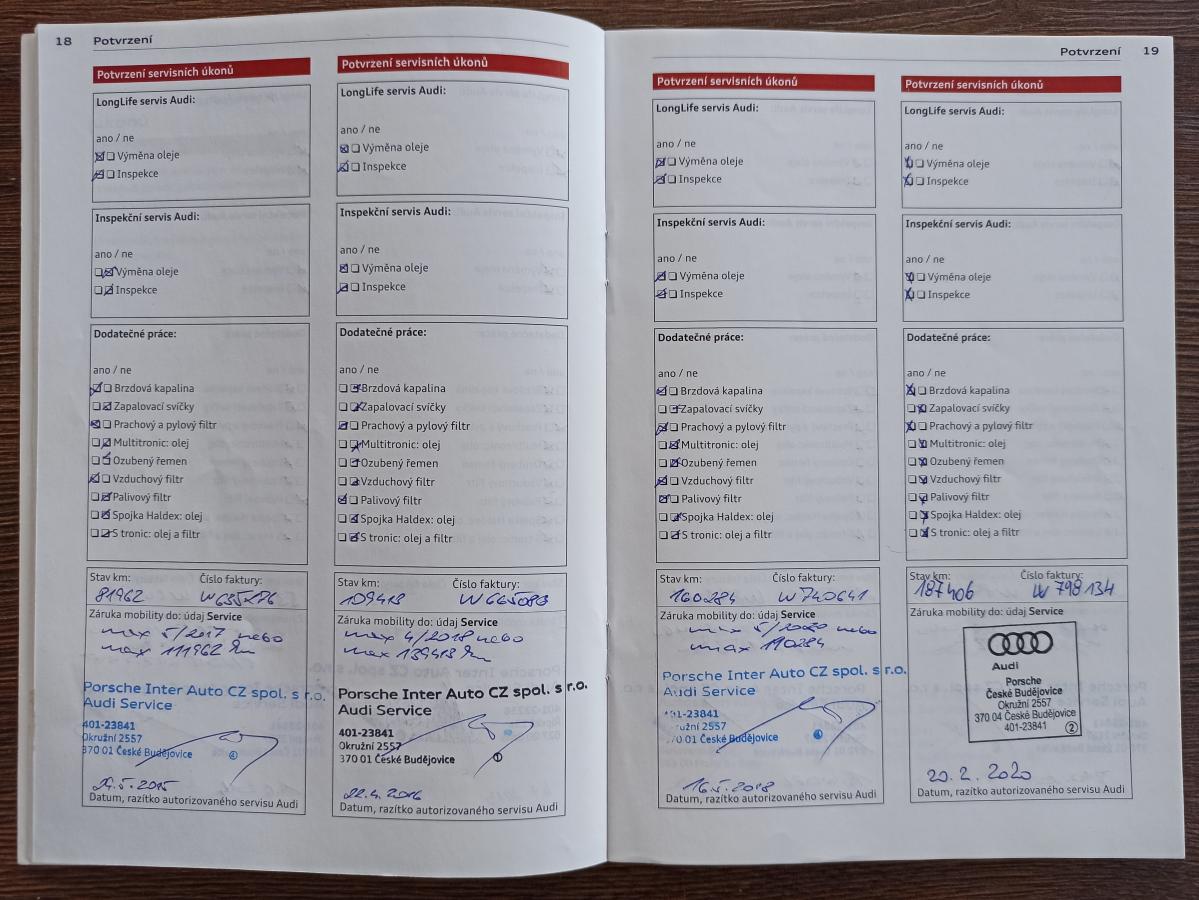 18 Potvrzení
Potvrzení servisních úkonů
LongLife servis Audi:
ano / ne
Výměna oleje
Inspekce
Inspekční servis Audi:
ano / ne
Výměna oleje
Inspekce
Dodatečné práce:
ano / ne
Brzdová kapalina
Zapalovací svíčky
Prachový a pylový filtr
Multitronic: olej
Ozubený řemen
Vzduchový filtr
Palivový filtr
Spojka Haldex: olej
S tronic: olej a filtr
Stav km: Číslo faktury:
81962
Záruka mobility do: údaj Service
max 5/2017 nebo
max 111962 km
Porsche Inter Auto CZ spol. s r.o.
Audi Service
401-23841
Okružní 2557
370 01 České Budějovice
29.5.2015
Datum, razítko autorizovaného servisu Audi
Potvrzení servisních úkonů
LongLife servis Audi:
ano / ne
Výměna oleje
Inspekce
Inspekční servis Audi:
ano / ne
Výměna oleje
Inspekce
Dodatečné práce:
ano / ne
Brzdová kapalina
Zapalovací svíčky
Prachový a pylový filtr
Multitronic: olej
Ozubený řemen
Vzduchový filtr
Palivový filtr
Spojka Haldex: olej
S tronic: olej a filtr
Stav km: Číslo faktury:
109413 W665083
Záruka mobility do: údaj Service
max 4/2018 nebo
max 139413 km
Porsche Inter Auto CZ spol. s r.o.
Audi Service
401-23841
Okružní 2557
370 01 České Budějovice
1
22.4.2016
Datum, razítko autorizovaného servisu Audi
Potvrzení 19
Potvrzení servisních úkonů
LongLife servis Audi:
ano / ne
Výměna oleje
Inspekce
Inspekční servis Audi:
ano / ne
Výměna oleje
Inspekce
Dodatečné práce:
ano / ne
Brzdová kapalina
Zapalovací svíčky
Prachový a pylový filtr
Multitronic: olej
Ozubený řemen
Vzduchový filtr
Palivový filtr
Spojka Haldex: olej
S tronic: olej a filtr
Stav km: Číslo faktury:
160284 W740641
Záruka mobility do: údaj Service
max 5/2020 nebo
max 190284
Porsche Inter Auto CZ spol. s r.o.
Audi Service
401-23841
Okružní 2557
370 01 České Budějovice
16.5.2018
Datum, razítko autorizovaného servisu Audi
Potvrzení servisních úkonů
LongLife servis Audi:
ano / ne
Výměna oleje
Inspekce
Inspekční servis Audi:
ano / ne
Výměna oleje
Inspekce
Dodatečné práce:
ano / ne
Brzdová kapalina
Zapalovací svíčky
Prachový a pylový filtr
Multitronic: olej
Ozubený řemen
Vzduchový filtr
Palivový filtr
Spojka Haldex: olej
S tronic: olej a filtr
Stav km: Číslo faktury:
187406 W 798134
Záruka mobility do: údaj Service
Audi
Porsche
České Budějovice
Okružní 2557
370 04 České Budějovice
401-23841 2
20.2.2020
Datum, razítko autorizovaného servisu Audi